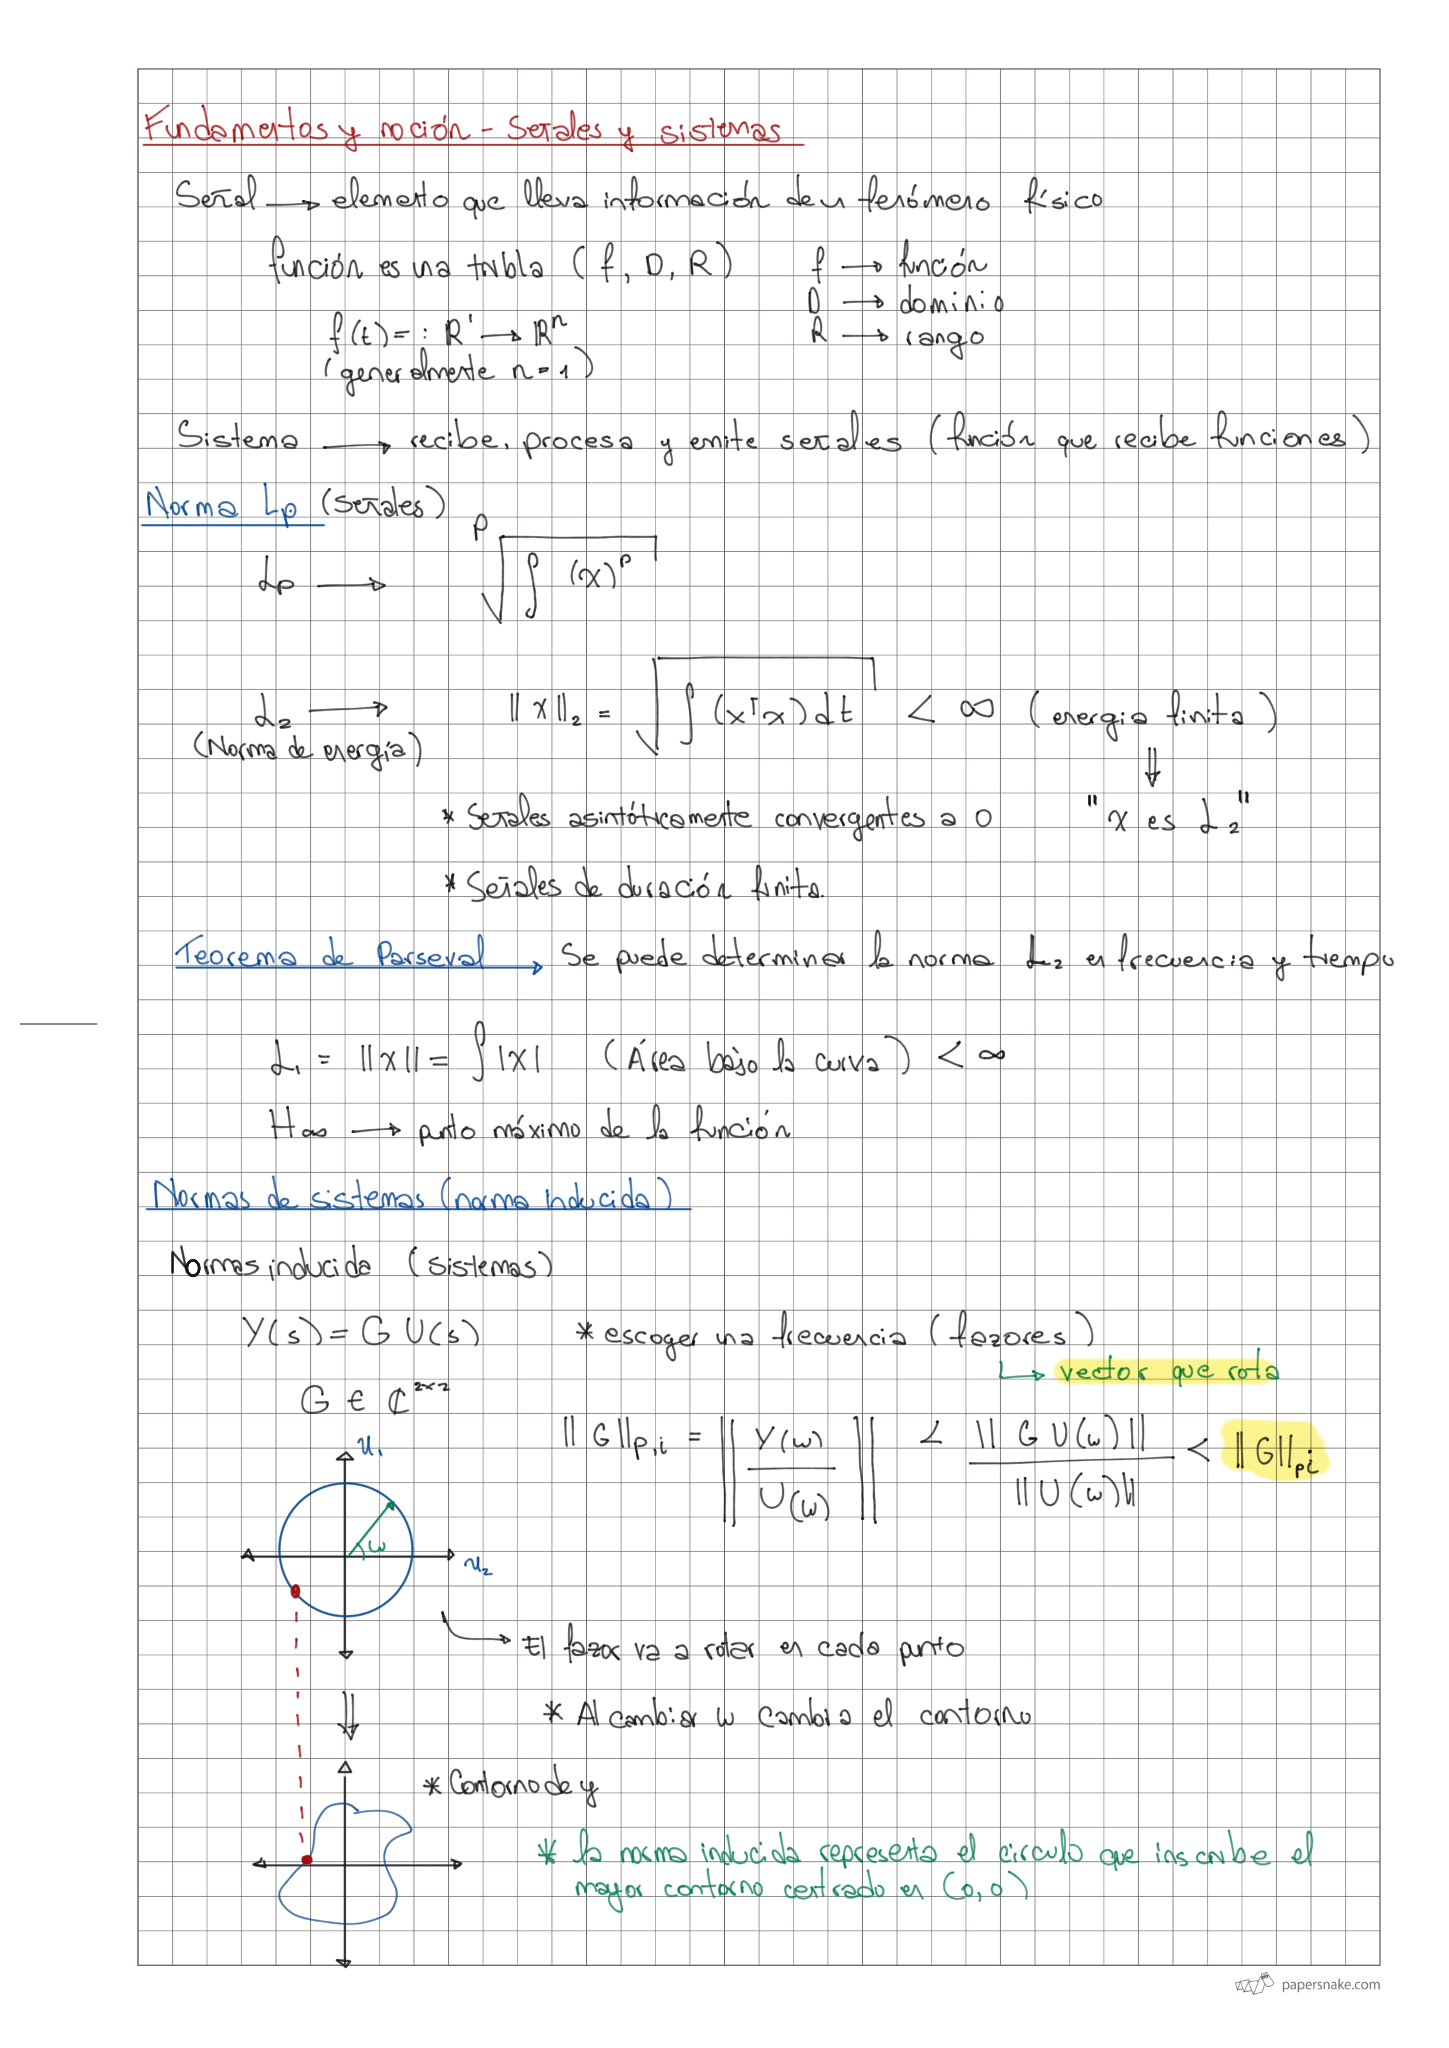 Fundamentos y noción - Señales y sistemas
Señal → elemento que lleva información de un fenómeno físico
función es una tripla (f, D, R)
f → función
D → dominio
R → rango
f(t) = : R¹ → Rⁿ
(generalmente n = 1)
Sistema → recibe, procesa y emite señales (función que recibe funciones)
Norma Lp (Señales)
Lp → ᵖ√∫ (x)ᵖ
L₂ → ‖x‖₂ = √∫ (xᵀx) dt < ∞ (energía finita)
(Norma de energía)
⇓
* Señales asintóticamente convergentes a 0 "x es L₂"
* Señales de duración finita.
Teorema de Parseval → Se puede determinar la norma L₂ en frecuencia y tiempo
L₁ = ‖x‖ = ∫ |x| (Área bajo la curva) < ∞
H∞ → punto máximo de la función
Normas de sistemas (norma inducida)
Normas inducida (sistemas)
Y(s) = G U(s) * escoger una frecuencia (fazores)
↳ vector que rota
G ∈ ℂ²ˣ²
‖G‖p,i = ‖ Y(ω) / U(ω) ‖ < ‖G U(ω)‖ / ‖U(ω)‖ < ‖G‖pi
u₁
ω
u₂
→ El fazor va a rotar en cada punto
⇓
* Al cambiar ω cambia el contorno
* Contorno de y
* la norma inducida representa el circulo que inscribe el
mayor contorno centrado en (0,0)
papersnake.com